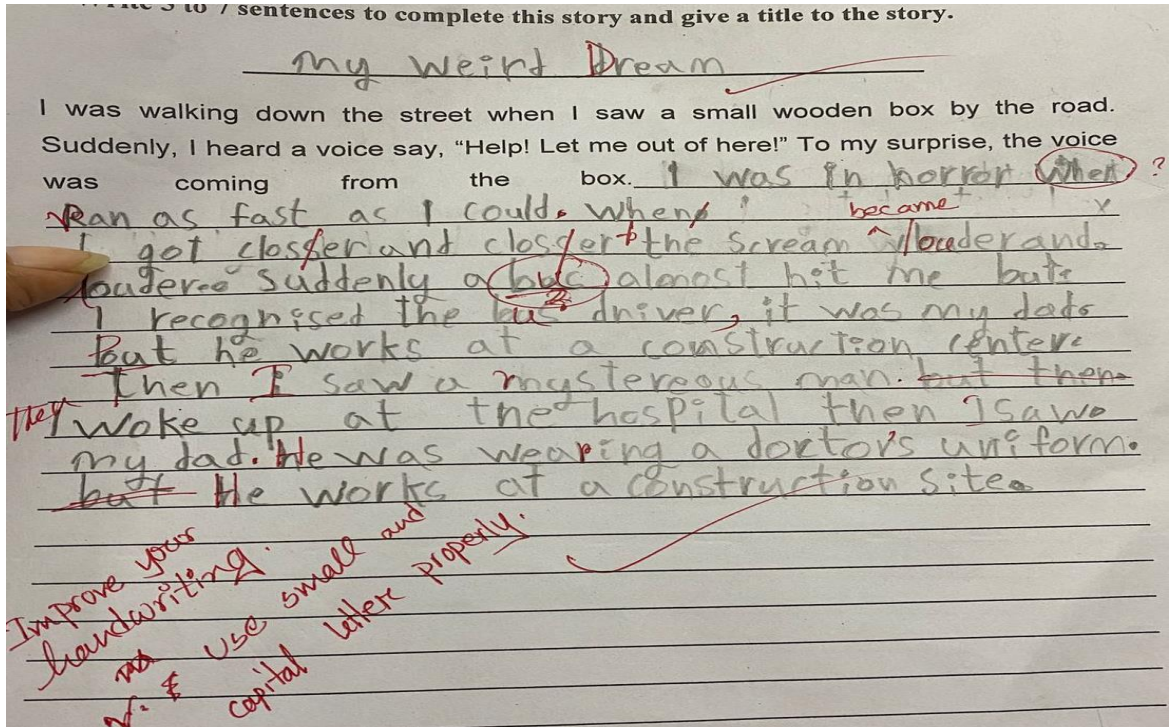 5 to 7 sentences to complete this story and give a title to the story.
My Weird Dream
I was walking down the street when I saw a small wooden box by the road.
Suddenly, I heard a voice say, “Help! Let me out of here!” To my surprise, the voice
was coming from the box. I was in horror when ?
Ran as fast as I could. when became
I got closser and closser the scream louder and
louder. Suddenly a buc almost hit me but
I recognised the bus driver, it was my dad.
But he works at a construction center.
Then I saw a mystereous man. but then
They I woke up at the hospital then I saw
my dad. He was wearing a doctor's uniform.
but He works at a construction site.
Improve your
handwriting.
use small and
capital letters properly.